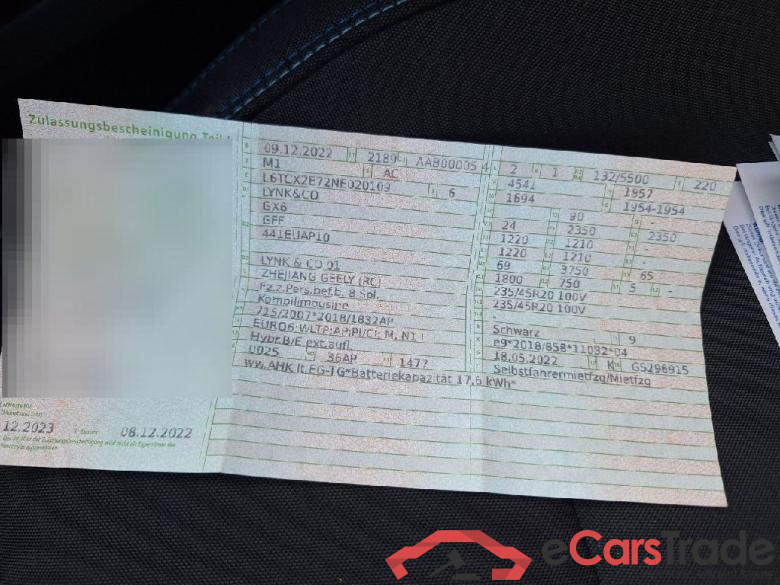 Zulassungsbescheinigung Teil I
09.12.2022 2189 AAB00005 4
M1 AC
L6TCX2E72NE020109 6
LYNK&CO
GX6
GFF
441EUAP10
LYNK & CO 01
ZHEJIANG GEELY (RC)
Fz.z.Pers.bef.b. 8 Spl.
Kombilimousine
715/2007*2018/1832AP
EURO6;WLTP;AP;PI/CI; M, N1 I
Hybr.B/E ext.aufl.
0025 36AP 1477
WW.AHK lt.EG-TG*Batteriekapazität 17,6 kWh*
2 1 132/5500 220
4541 1857
1694 1954-1954
90
24 2350 2350
1220 1210 -
1220 1210 -
69 3750 65
1800 750 5 -
235/45R20 100V
235/45R20 100V
-
Schwarz 9
e9*2018/858*11032*04
18.05.2022 K GS296915
Selbstfahrermietfzg/Mietfzg
12.2023 08.12.2022
eCarsTrade